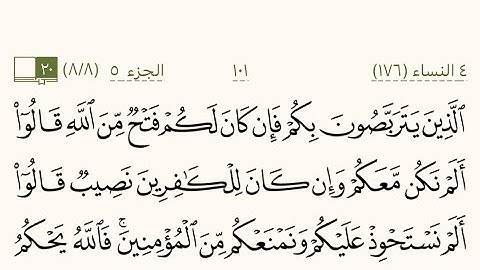 ٤ النساء (١٧٦) ١٠١ الجزء ٥ (٨/٨) ٢٠
ٱلَّذِينَ يَتَرَبَّصُونَ بِكُمْ فَإِن كَانَ لَكُمْ فَتْحٌ مِّنَ ٱللَّهِ قَالُوٓا۟
أَلَمْ نَكُن مَّعَكُمْ وَإِن كَانَ لِلْكَـٰفِرِينَ نَصِيبٌ قَالُوٓا۟
أَلَمْ نَسْتَحْوِذْ عَلَيْكُمْ وَنَمْنَعْكُم مِّنَ ٱلْمُؤْمِنِينَ ۚ فَٱللَّهُ يَحْكُمُ